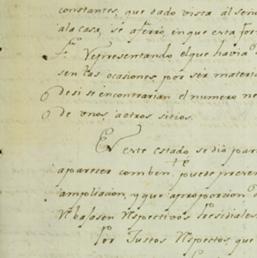 constantes, que dado vista al señ
ala casa, se aferro, en que esta for
Representando el que havia
sentas ocasiones, por ser materia
desi se encontrarian el numero ne
de unos, a otros sitios.
En este estado, se dio par
aparecer combente, puede preven
ampliacion, y que aproporcion
bajasen Respectivos Presidiales
Por Justos Respectos, que